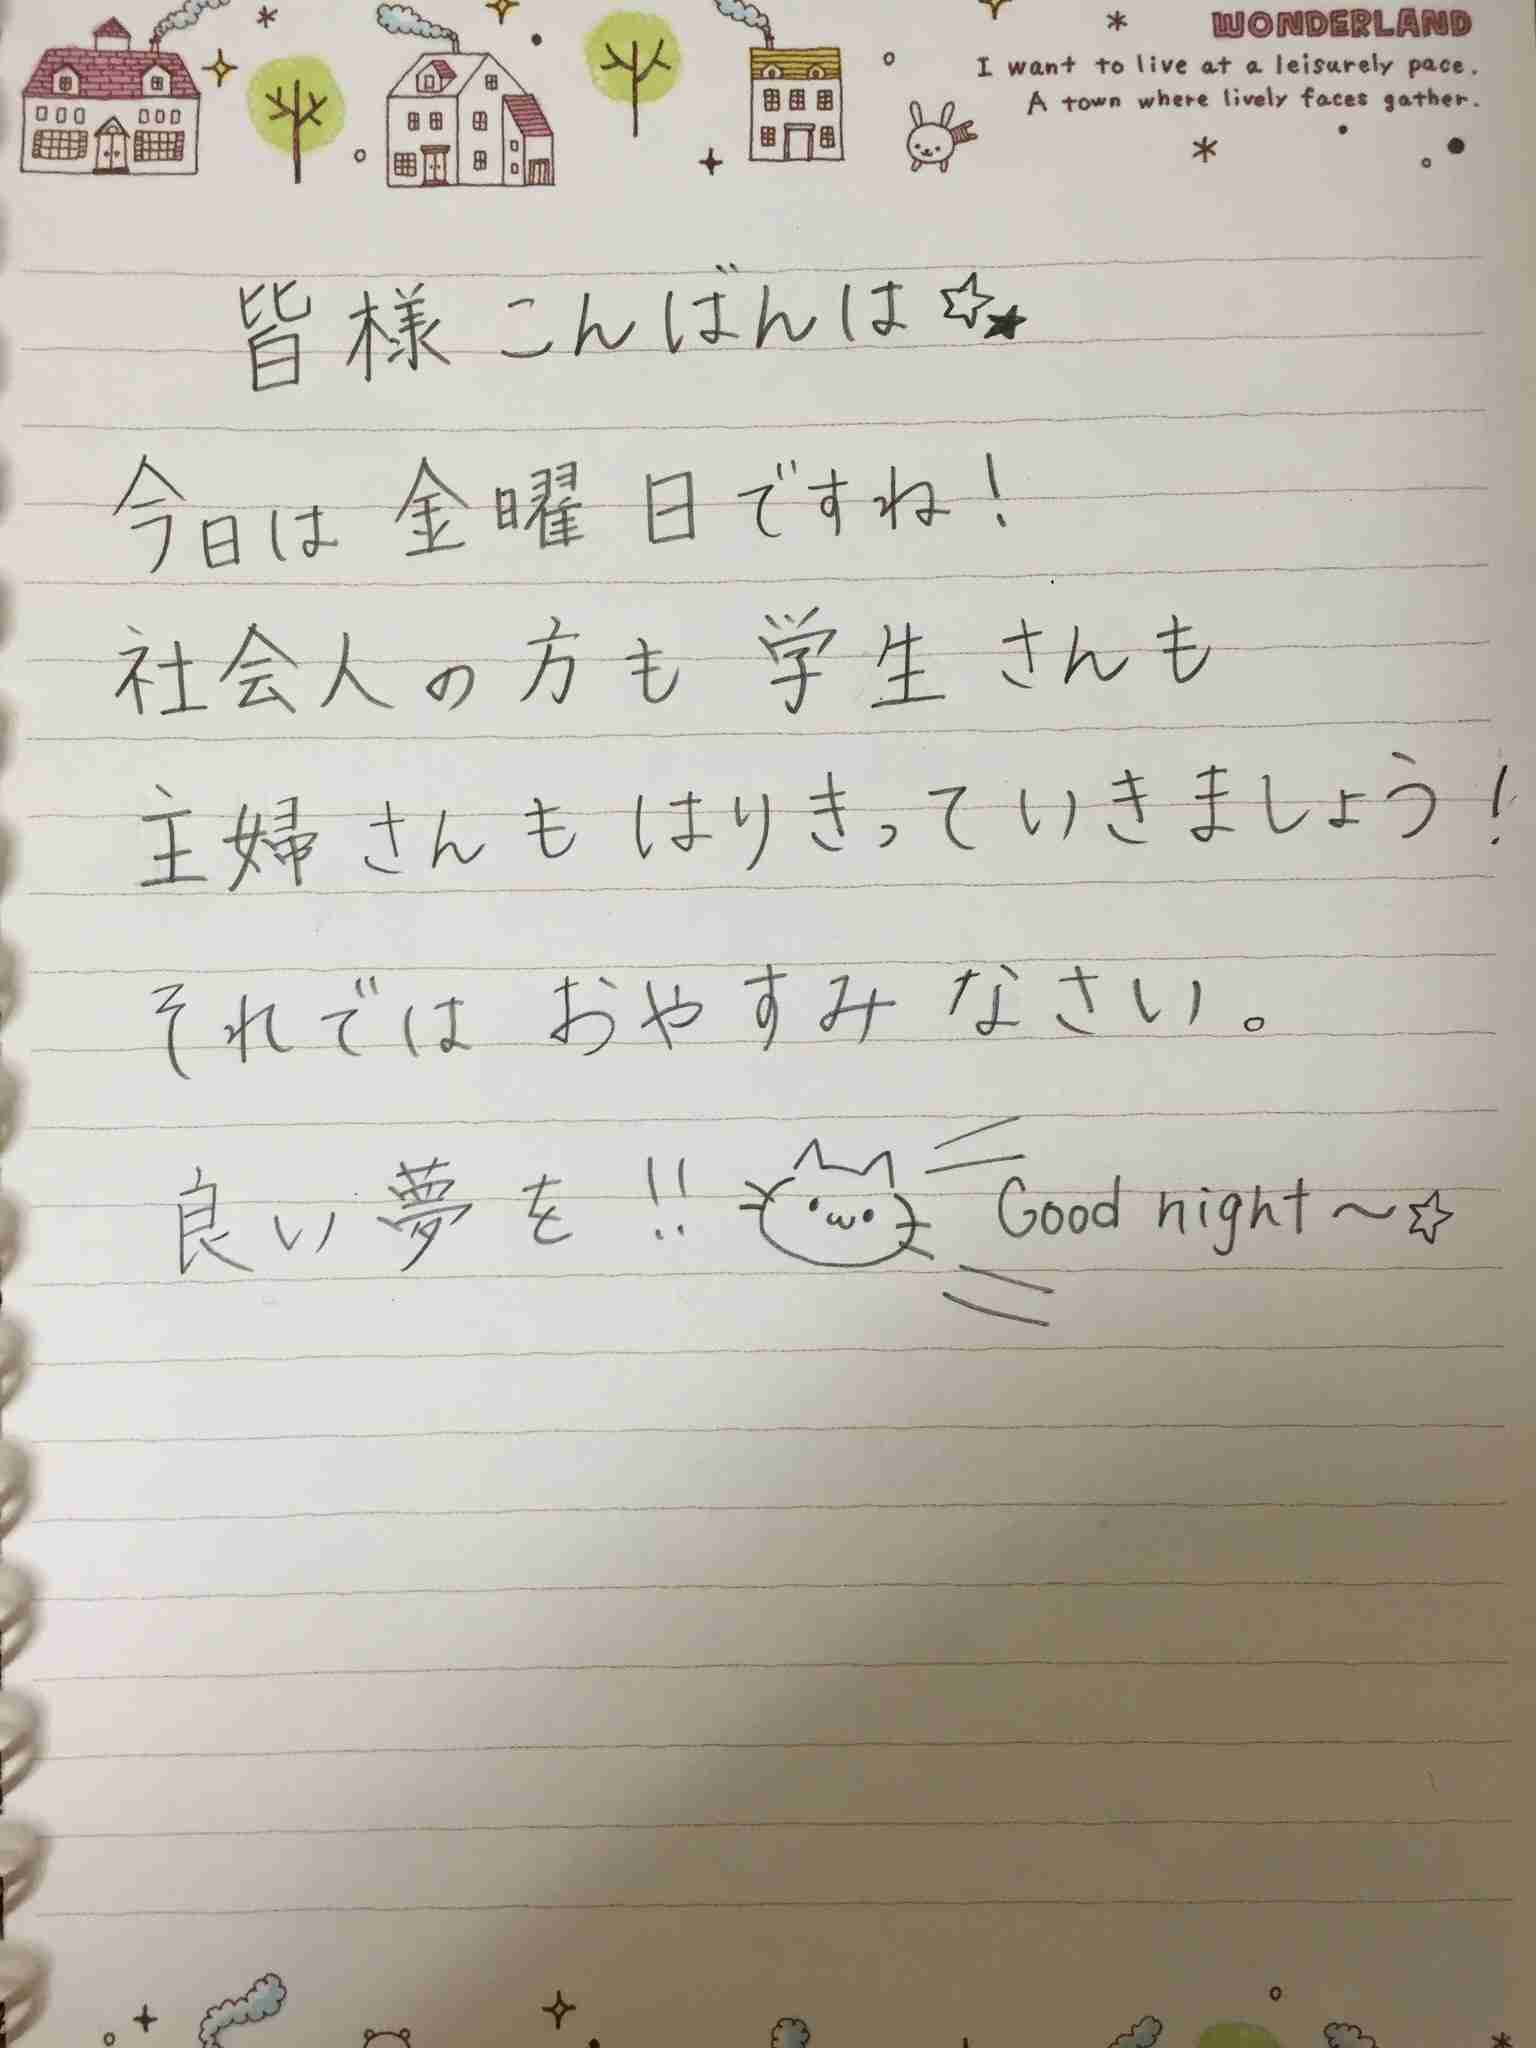 WONDERLAND
I want to live at a leisurely pace.
A town where lively faces gather.
皆様こんばんは☆★
今日は金曜日ですね!
社会人の方も学生さんも
主婦さんもはりきっていきましょう!
それではおやすみなさい。
良い夢を!! Good night~☆